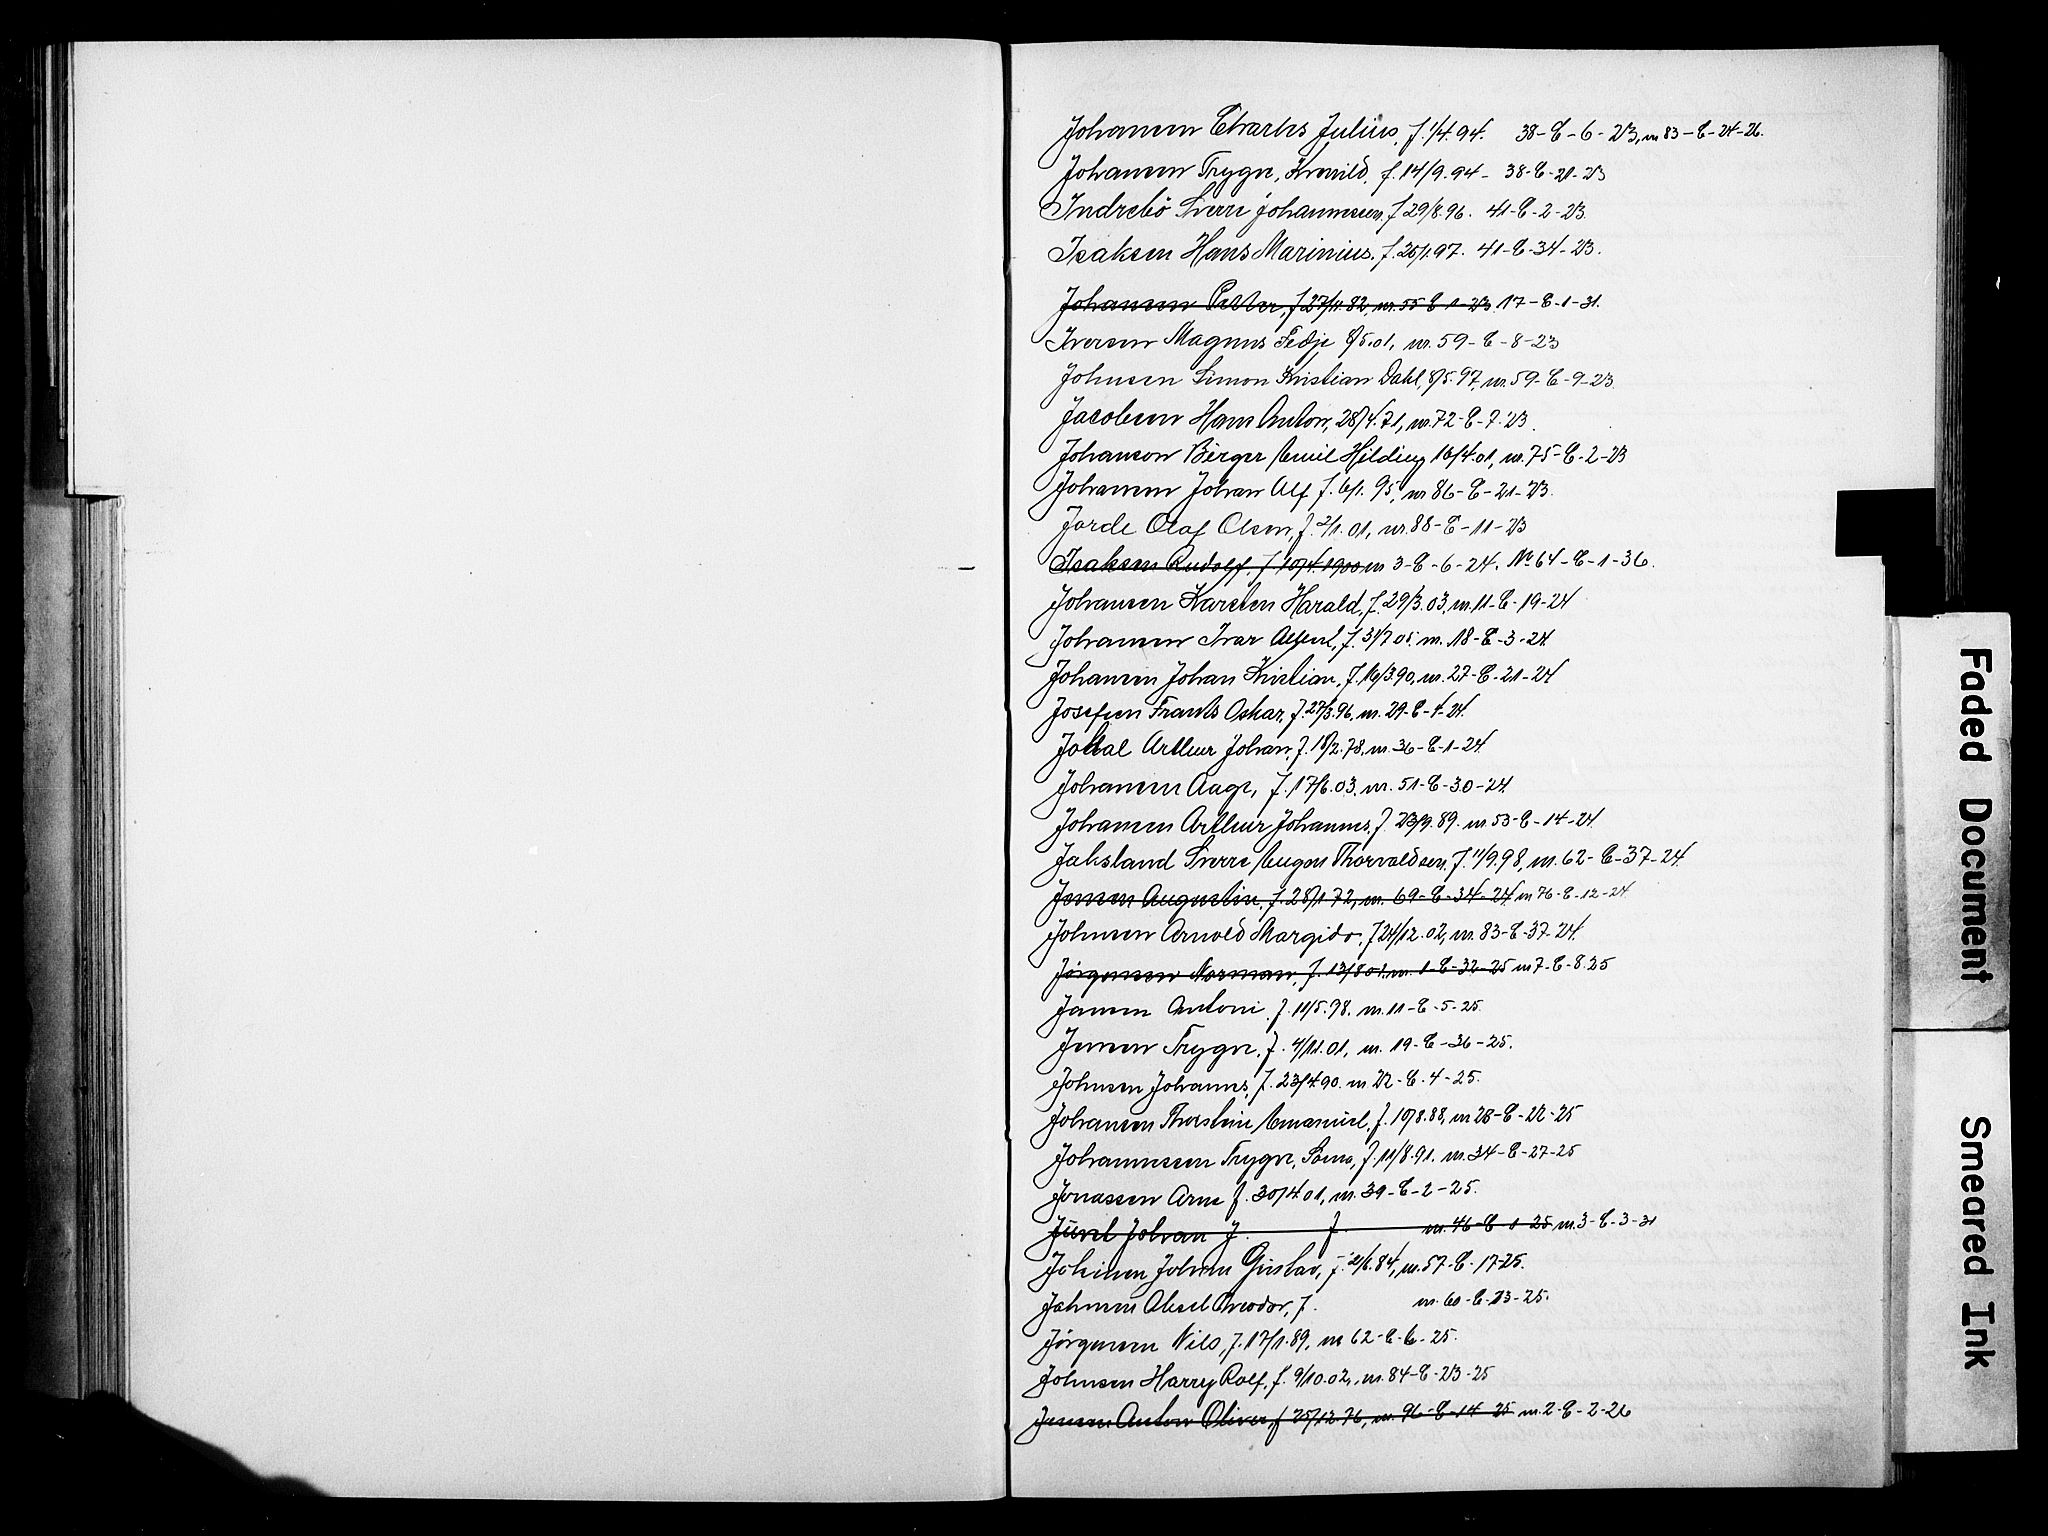 Johansen Charles Julius, f. 1/4.94. 38-E-6-23, nr 83-E-24-26.
Johansen Trygve, f. 14/9.94- 38-E-21-23
Indrebö Sverre Johannessen, f 29/8.96. 41-E-2-23.
Isaksen Hans Marinius, f. 41-E-34-23.
Johansen Petter, f 27/11.82, nr. 55-E-1-23. 17-E-1-31.
Iversen Magnus Fedje 8/5.01, nr. 59-E-8-23
Johnsen Simon Kristian Dahl, 8/5.97, nr. 59-E-9-23.
Jacobsen Hans Anton, 28/4.71, nr. 72-E-7.23.
Johanson Birger Emil Hilding 16/4.01, nr. 75-E-2-23
Johansen Johan Alf f. 6/1.95, nr 86-E-21-23.
Jorde Olaf Olsen, f. 2/1.01, nr. 88-E-11-23
Isaksen Rudolf, f 10/4.1900 nr 3-E-6-24. No 64-E-1-36.
Johansen Karsten Harald, f. 29/3.03, nr. 11-E-19-24
Johansen Ivar f. 31/7 05. nr. 18-E-3-24.
Johansen Johan Kristian, f. 16/3.90, nr. 27-E-21-24
Josefsen Frants Oskar, f. 27/3.96, nr. 29-E-1-24.
Arthur Johan, f. 18/2.78, nr. 36-E-1-24.
Johansen Aage, f. 17/6.03, nr. 51-E-30-24.
Johansen Arthur Johannes, f. 23/9.89. nr 53-E-14-24.
Jaksland Sverre Eugen Thorvaldsen, f. 11/9.98, nr. 62-E-37-24.
Jensen Augustin, f. 28/1 72, nr. 69-E-34-24 nr 76-E-12-24
Johnsen Arnold Margido, f 24/12.02, nr. 83-E-37-24.
Jörgensen Norman, f. 13/8 01. nr. 1-E-32-25 nr 7-E-8.25
Jansen Antoni f. 11/5.98. nr. 11-E-5-25.
Jensen Trygve, f. 4/11.01, nr. 19-E-36-25.
Johnsen Johannes, f. 23/4.90. nr 22-E.4-25.
Johansen Thorstein Emanuel, f. 10/8.88, nr 28-E-22-25
Johannessen Trygve, f. 11/8.91. nr. 34-E-27-25
Jonassen Arne f. 30/4.01, nr. 39-E-2-25.
Juvel Johan J. f. nr. 46-E-1-25 nr. 3-E-3-31
Johan Gustav, f. 2/6.84, nr. 57-E-17-25.
Jahnsen Aksel f. nr. 60-E-13-25.
Jörgensen Nils, f. 17/1.89, nr 62-E-6-25.
Johnsen Harry Rolf, f. 9/10.02, nr. 84-E-23-25
Jensen Anton Oliver, f 25/12.76, nr. 96-E-14-25 nr. 2-E-2-26
Faded Document
Smeared Ink